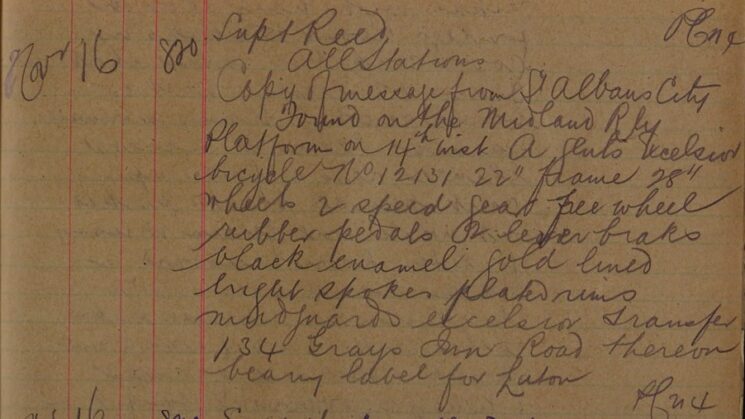 Nov 16 820. Supt Reed PC n4
All Stations
Copy of message from St Albans City
Found on the Midland Rly
Platform on 14th inst A gents Excelsior
bicycle No 12131 22" frame 28"
wheels 2 speed gear free wheel
rubber pedals 2 lever braks
black enamel gold lined
bright spokes plated rims
mudguards excelsior transfer
134 Grays Inn Road thereon
bearing label for Luton
n4
16